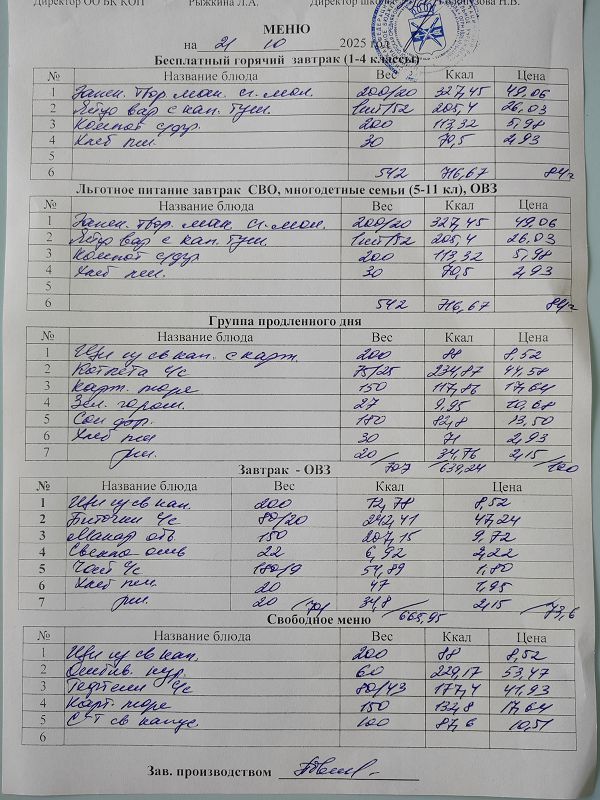 Директор ОО БК КОП Рыжкина Л.А. Директор школы
МЕНЮ
на 21 10 2025 год
Бесплатный горячий завтрак (1-4 классы)
№ Название блюда Вес Ккал Цена
1 Запек. твор. ман. сг. мол. 200/20 327,45 49,06
2 Яйцо вар с кап. туш. 1шт/52 205,4 26,03
3 Компот с/фр. 200 113,32 5,98
4 Хлеб пш. 30 70,5 2,93
5
6 542 716,67 84
Льготное питание завтрак СВО, многодетные семьи (5-11 кл), ОВЗ
№ Название блюда Вес Ккал Цена
1 Запек. твор. ман. сг. мол. 200/20 327,45 49,06
2 Яйцо вар с кап. туш. 1шт/52 205,4 26,03
3 Компот с/фр. 200 113,32 5,98
4 Хлеб пш. 30 70,5 2,93
5
6 542 716,67 84
Группа продленного дня
№ Название блюда Вес Ккал Цена
1 Щи из св кап. с карт. 200 88 8,52
2 Котлета с/с 75/25 234,87 44,58
3 Карт. пюре 150 117,86 17,64
4 Зел. горош. 27 9,95 10,68
5 Сок фр. 180 82,8 13,50
6 Хлеб пш 30 71 2,93
7 рж. 20/707 34,76/639,24 2,15/100
Завтрак - ОВЗ
№ Название блюда Вес Ккал Цена
1 Щи из св кап. 200 72,78 8,52
2 Биточки с/с 80/20 242,41 47,24
3 Макар отв 150 207,15 9,72
4 Свекла отв 22 6,92 2,22
5 Чай с/с 180/9 54,89 1,80
6 Хлеб пш. 20 47 1,95
7 рж. 20/701 34,8/665,95 2,15/73,6
Свободное меню
№ Название блюда Вес Ккал Цена
1 Щи из св кап. 200 88 8,52
2 Отбив. кур. 60 229,17 53,47
3 Тефтели с/с 80/43 177,4 41,93
4 Карт. пюре 150 132,8 17,64
5 С-т св капус. 100 87,6 10,51
6
Зав. производством